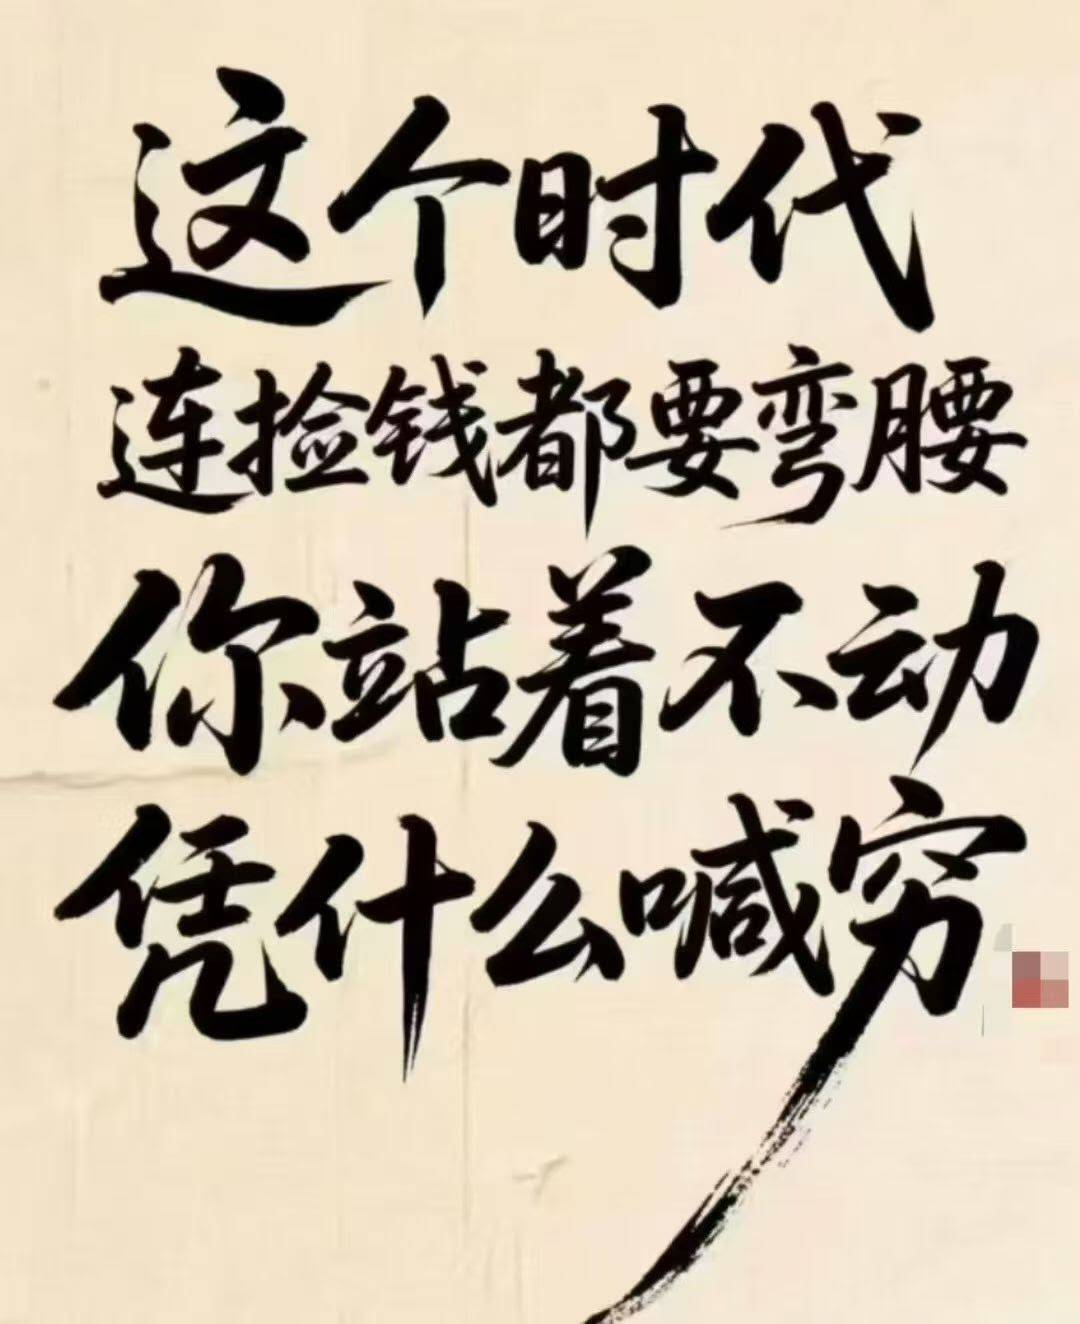 这个时代
连捡钱都要弯腰
你站着不动
凭什么喊穷